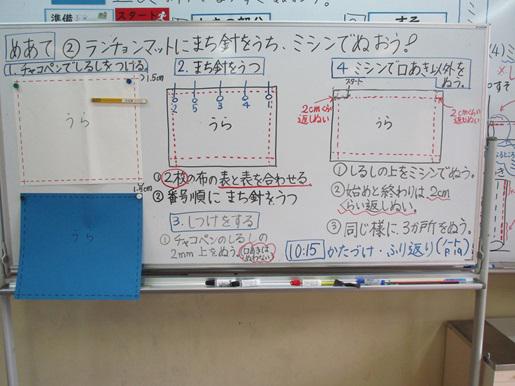 準備
スタート
めあて ② ランチョンマットにまち針をうち、ミシンでぬおう!
1. チャコペンでしるしをつける
1.5cm
うら
1.5cm
うら
2. まち針をうつ
2 5 3 4 1
うら
① 2枚の布の表と表を合わせる
② 番号順にまち針をうつ
3. しつけをする
① チャコペンのしるしの
2mm上をぬう。
口あきは
ぬわない
4 ミシンで口あき以外を
ぬう。
スタート
2cmくらい
返しぬい
うら
2cmくらい
返しぬい
① しるしの上をミシンでぬう。
② 始めと終わりは2cm
くらい返しぬい。
③ 同じ様に、3か所をぬう。
10:15 かたづけ・ふり返り
ノート
P.19